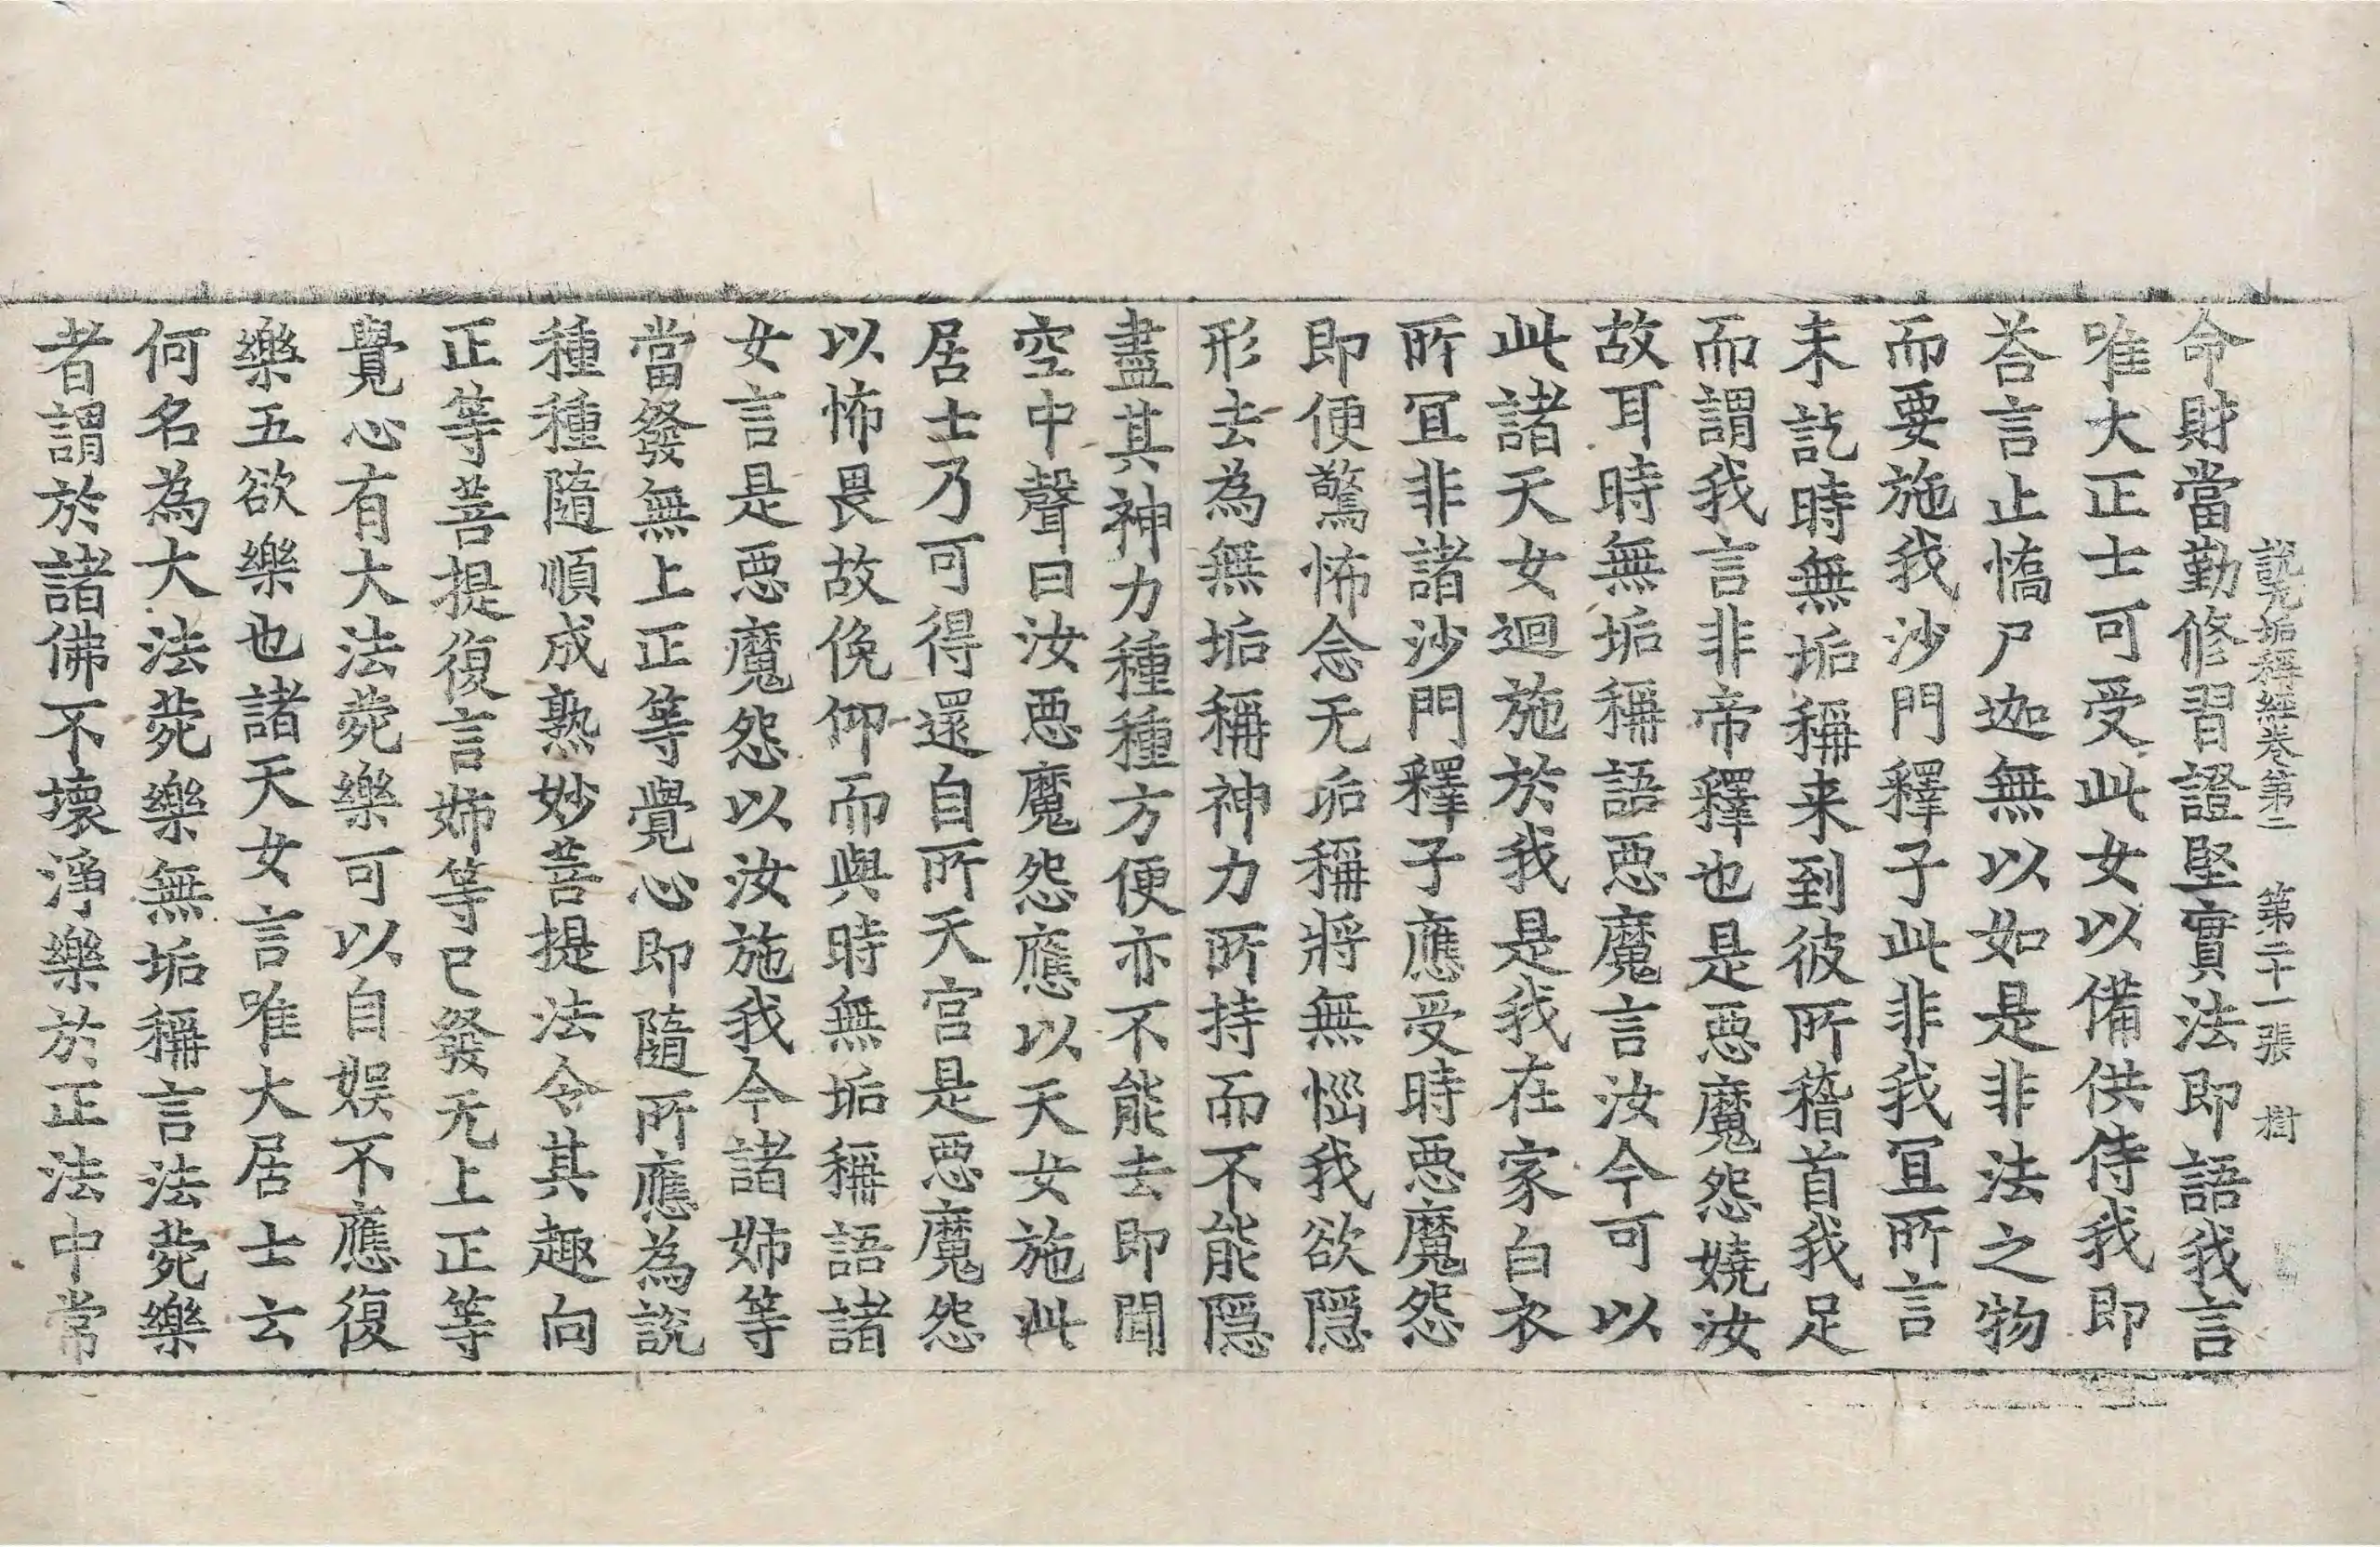 說无垢稱經卷第二 第二十一張 樹
命財當勤修習證堅實法即語我言
唯大正士可受此女以備供侍我即
荅言止憍尸迦無以如是非法之物
而要施我沙門釋子此非我冝所言
未訖時無垢稱来到彼所稽首我足
而謂我言非帝釋也是惡魔怨嬈汝
故耳時無垢稱語惡魔言汝今可以
此諸天女迴施於我是我在家白衣
所冝非諸沙門釋子應受時惡魔怨
即便驚怖念无垢稱將無惱我欲隱
形去為無垢稱神力所持而不能隱
盡其神力種種方便亦不能去即聞
空中聲曰汝惡魔怨應以天女施此
居士乃可得還自所天宫是惡魔怨
以怖畏故俛仰而與時無垢稱語諸
女言是惡魔怨以汝施我今諸姊等
當發無上正等覺心即隨所應為說
種種隨順成熟妙菩提法令其趣向
正等菩提復言姊等已發无上正等
覺心有大法菀樂可以自娛不應復
樂五欲樂也諸天女言唯大居士云
何名為大法菀樂無垢稱言法菀樂
者謂於諸佛不壞淨樂於正法中常